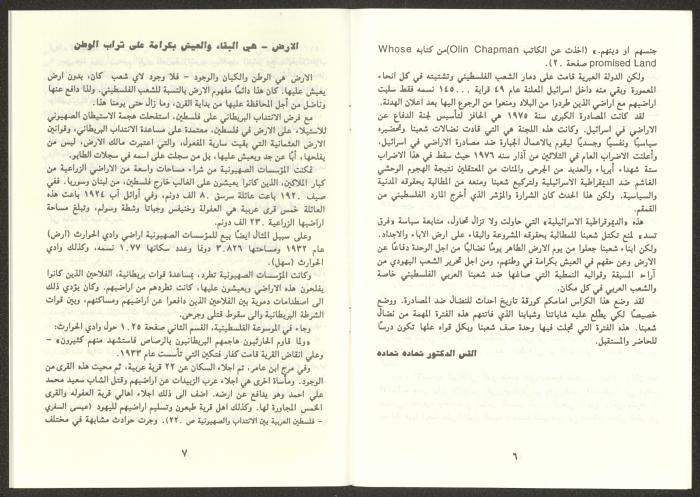 جنسهم او دينهم.» (اخذت عن الكاتب Olin Chapman)من كتابه Whose
promised Land صفحة ٢٠).
ولكن الدولة العبرية قامت على دمار الشعب الفلسطيني وتشتيته في كل انحاء
المعمورة وبقي منه داخل اسرائيل المعلنة عام ٤٩ قرابة ١٤٥٠٠٠ نسمه فقط سلبت
اراضيهم مع اراضي الذين طردوا من البلاد ومنعوا من الرجوع اليها بعد اعلان الهدنة.
لقد كانت المصادرة الكبرى سنة ١٩٧٥ هي الحافز لتأسيس لجنة الدفاع عن
الاراضي في اسرائيل. وكانت هذه اللجنة هي التي قادت نضالات شعبنا وتحضيره
سياسيًا ونفسيًا وجسديًا ليقوم بالاعمال الجبارة ضد مصادرة الاراضي في اسرائيل،
وأعلنت الاضراب العام في الثلاثين من آذار سنه ١٩٧٦ حيث سقط في هذا الاضراب
ستة شهداء أبرياء والعديد من الجرحى والمئات من المعتقلين نتيجة الهجوم الوحشي
الغاشم ضد الديمقراطية الاسرائيلية لتركيع شعبنا ومنعه من المطالبة بحقوقه المدنية
والسياسية. ولكن هذا الحدث كان الشرارة والمؤشر الذي أخرج المارد الفلسطيني من
القمقم.
هذه «الديمقراطية الاسرائيلية» التي حاولت ولا تزال تحاول، متابعة سياسة وفرق
تسد» لمنع تكتل شعبنا للمطالبة بحقوقه المشروعة والبقاء على ارض الاباء والاجداد.
ولكن ابناء شعبنا جعلوا من يوم الارض الظاهر يومًا نضاليًا من اجل الوحدة دفاعًا عن
الارض وعن حقهم في العيش بكرامة في وطنهم، ومن اجل تحرير الشعب اليهودي من
آراءه المسبقة وقوالبه النمطية التي صاغها ضد شعبنا العربي الفلسطيني خاصة
والشعب العربي في كل مكان.
لقد وضع هذا الكراس امامكم كورقة تاريخ احداث للنضال ضد المصادرة. ووضع
خصيصًا لكي يطلع عليه شاباتنا وشبابنا الذي فاتتهم هذه الفترة المهمة من نضال
شعبنا. هذه الفترة التي تجلت فيها وحدة صف شعبنا وبكل قواه علها تكون درسًا
للحاضر والمستقبل.
القس الدكتور شحاده شحاده
٦
الارض - هي البقاء والعيش بكرامة على تراب الوطن
الارض هي الوطن والكيان والوجود - فلا وجود لاي شعب كان، بدون ارض
يعيش عليها. كان هذا دائمًا مفهوم الارض بالنسبة للشعب الفلسطيني. ولذا دافع عنها
وناضل من أجل المحافظة عليها من بداية القرن، وما زال حتى يومنا هذا.
مع فرض الانتداب البريطاني على فلسطين، استفحلت هجمة الاستيطان الصهيوني
للاستيلاء على الارض في فلسطين، معتمدة على مساعدة الانتداب البريطاني، وقوانين
الارض العثمانية التي بقيت سارية المفعول، والتي اعتبرت مالك الارض، ليس من
يفلحها، أبًا عن جد ويعيش عليها، بل من سجلت على اسمه في سجلات الطابو.
تمكنت المؤسسات الصهيونية من شراء مساحات واسعة من الاراضي الزراعية من
كبار الملاكين، الذين كانوا يعيشون على الغالب خارج فلسطين، من لبنان وسوريا. ففي
صيف ١٩٢٠ باعت عائلة سرسق ٨٠ الف دونم، وفي أوائل آب ١٩٢٤ باعت هذه
العائلة خمس قرى عربية هي العفولة وخنيفس وجباتا وشطة وسولم، وتبلغ مساحة
اراضيها الزراعية ٢٣٠ الف دونم.
وعلى سبيل المثال ايضًا بيع للمؤسسات الصهيونية اراضي وادي الحوارث (ارض)
عام ١٩٣٢ ومساحتها ٣،٨٢٩ دونمًا وعدد سكانها ١،٧٧ نسمه، وكذلك وادي
الحوارث (سهل).
وكانت المؤسسات الصهيونية تطرد، بمساعدة قوات بريطانية، الفلاحين الذين كانوا
يفلحون هذه الاراضي ويعيشون عليها، كانت تطردهم من اراضيهم. وكان يؤدي ذلك
الى اصطدامات دموية بين الفلاحين الذين دافعوا عن اراضيهم ومساكنهم، وبين قوات
الشرطة البريطانية والى سقوط قتلى وجرحى.
وجاء في الموسوعة الفلسطينية، القسم الثاني صفحة ١،٢٥ حول وادي الحوارث:
«ولما قاوم الحارثيون هاجمهم البريطانيون بالرصاص فاستشهد منهم كثيرون» -
وعلي انقاض القرية قامت كفار فتكين التي تأسست عام ١٩٣٣.
وفي مرج ابن عامر، تم اجلاء السكان عن ٢٢ قرية عربية، ثم محيت هذه القرى من
الوجود. ومأساة اخرى هي اجلاء عرب الزبيدات عن اراضيهم وقتل الشاب سعيد محمد
علي احمد وهو يدافع عن ارضه. اضف الى ذلك اجلاء اهالي قرية العفوله والقرى
الخمس المجاورة لها. وكذلك اهل قرية طبعون وتسليم اراضيهم لليهود (عيسى السفري
- فلسطين العربية بين الانتداب والصهيونية ص ٢٢٠). وجرت حوادث مشابهة في مختلف
٧